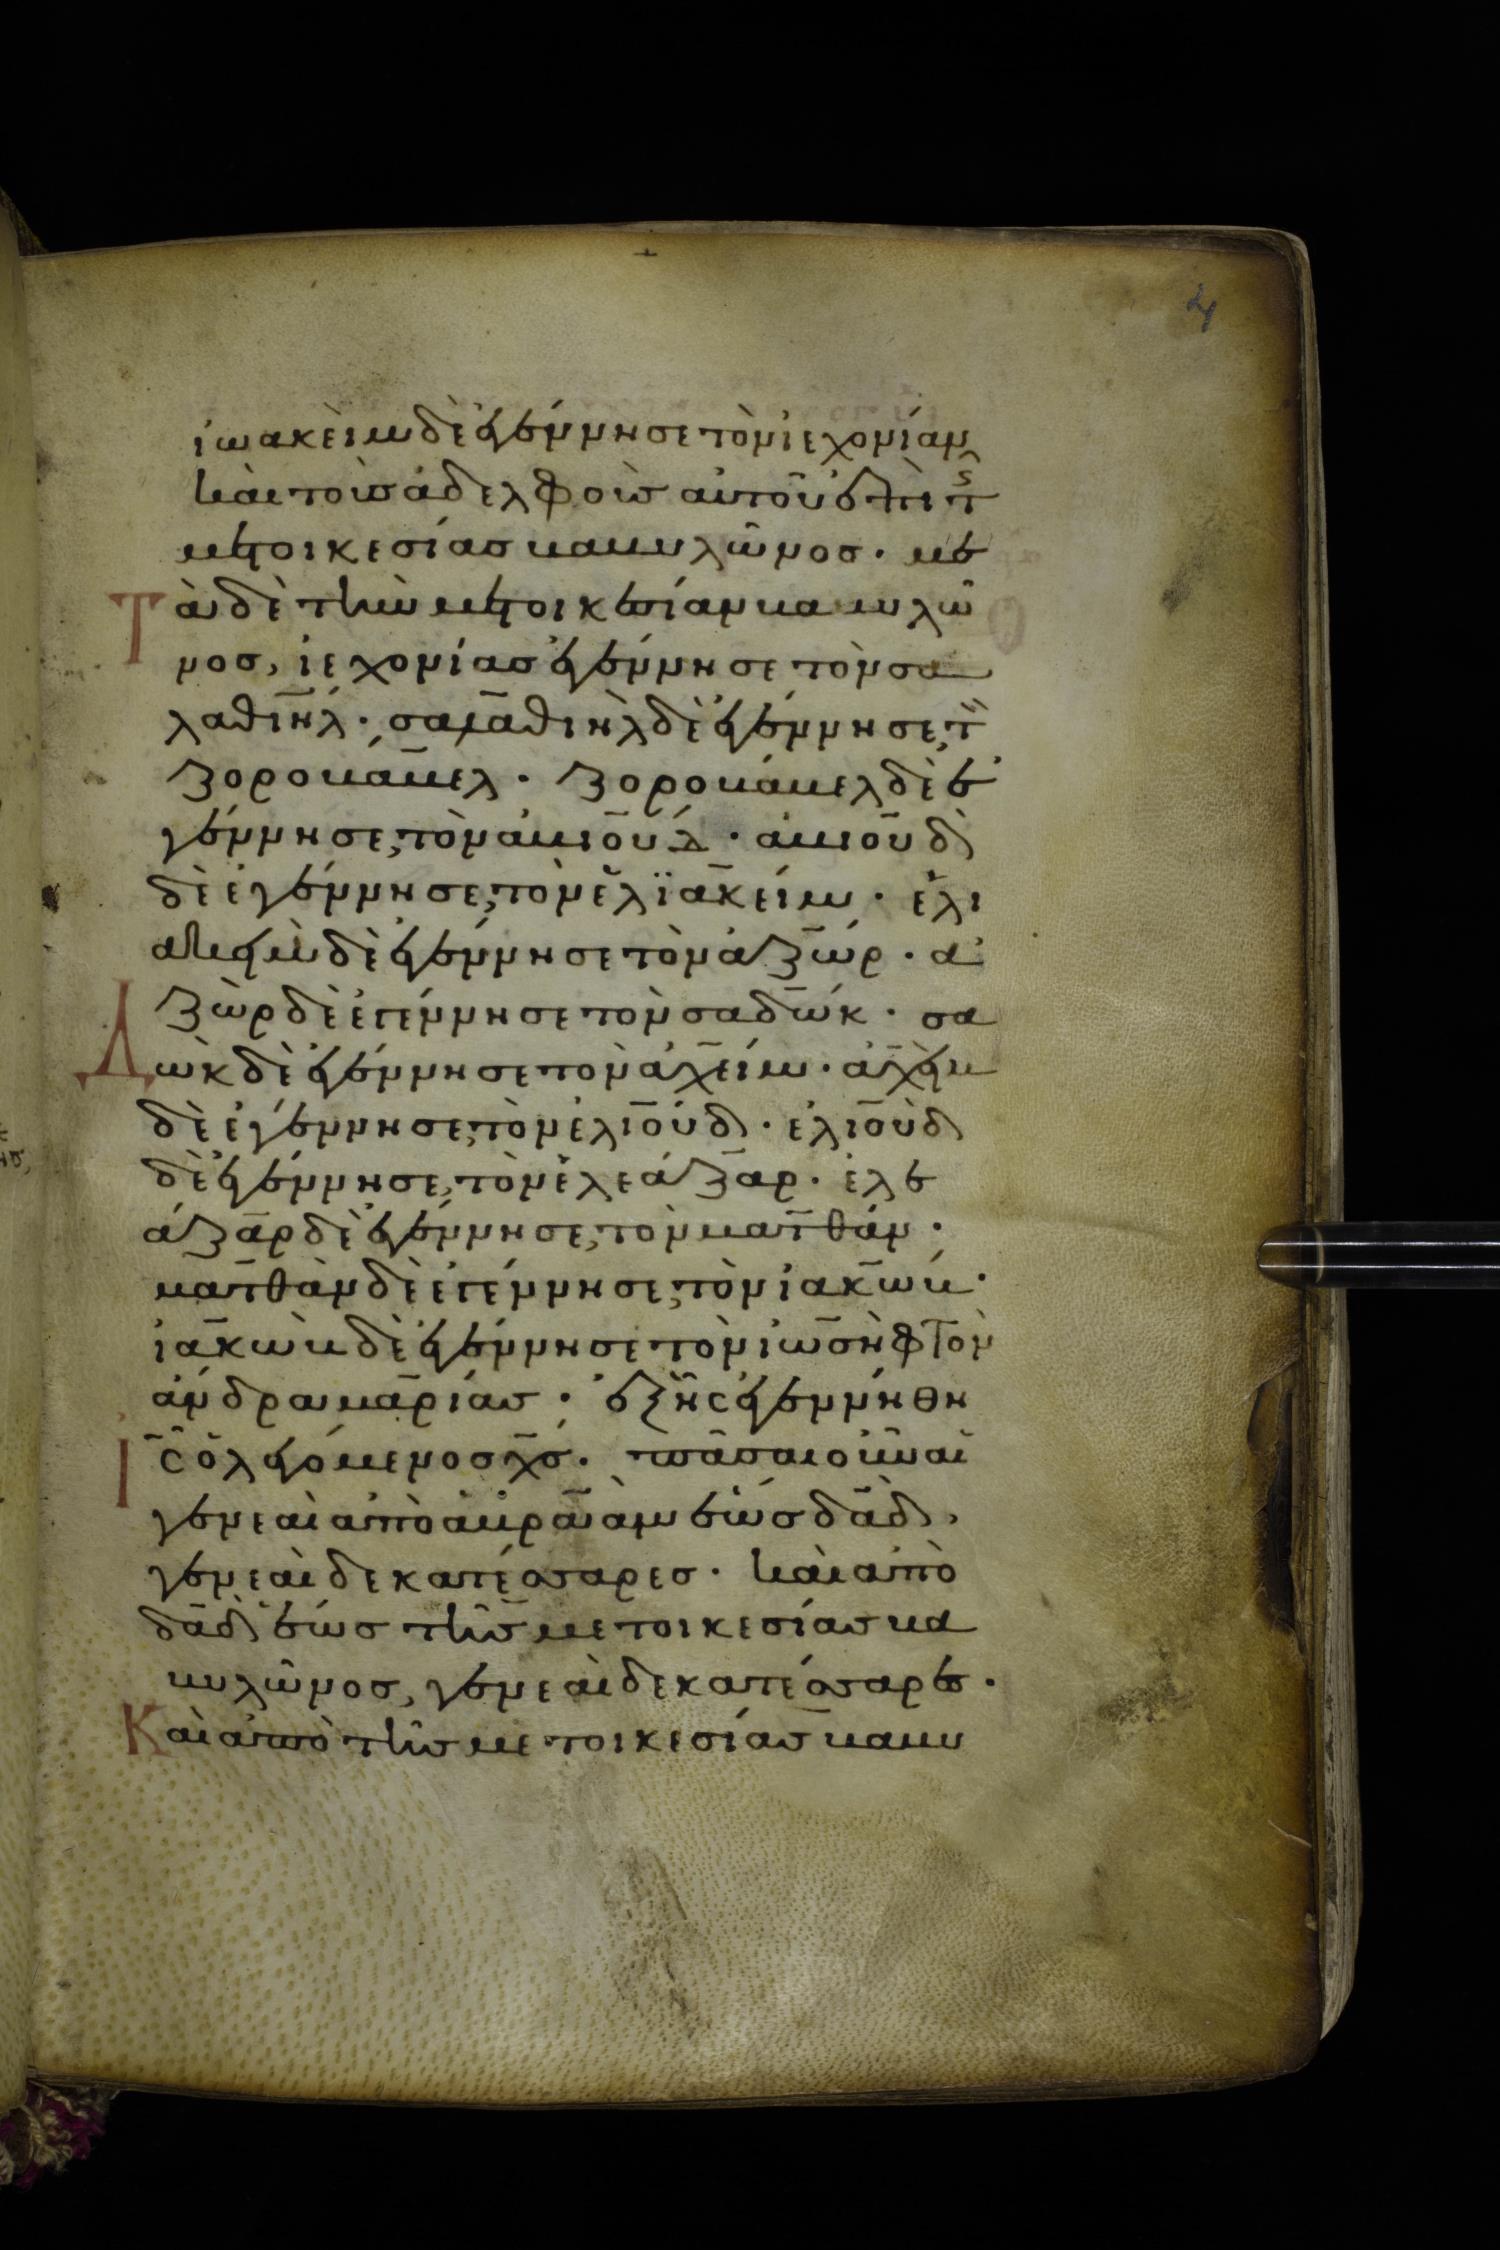 4
ἰωακεὶμ δὲ ἐγέννησε τὸν ἰεχονίαν
καὶ τοὺς ἀδελφοὺς αὐτοῦ ἐπὶ τῆς
μετοικεσίας βαβυλῶνος· με
Τὰ δὲ τὴν μετοικεσίαν βαβυλῶ
νος, ἰεχονίας ἐγέννησε τὸν σα
λαθιήλ· σαλαθιὴλ δὲ ἐγέννησε τὸν
ζοροβάβελ· ζοροβάβελ δὲ ἐ
γέννησε τὸν ἀβιούδ· ἀβιοῦδ
δὲ ἐγέννησε τὸν ἐλϊακείμ· ἐλι
ακεὶμ δὲ ἐγέννησε τὸν ἀζώρ· ἀ
ζὼρ δὲ ἐγέννησε τὸν σαδώκ· σα
Δὼκ δὲ ἐγέννησε τὸν ἀχείμ· ἀχεὶμ
δὲ ἐγέννησε τὸν ἐλιούδ· ἐλιοὺδ
δὲ ἐγέννησε τὸν ἐλεάζαρ· ἐλε
άζαρ δὲ ἐγέννησε τὸν ματθάν·
ματθὰν δὲ ἐγέννησε τὸν ἰακώβ·
ἰακὼβ δὲ ἐγέννησε τὸν ἰωσὴφ τὸν
ἄνδρα μαρίας· ἐξ ἧς ἐγεννήθη
Ι͞ς ὁ λεγόμενος χ͞ς· πᾶσαι οὖν αἱ
γενεαὶ ἀπὸ ἀβραὰμ ἕως δα͞δ,
γενεαὶ δεκατέσσαρες· καὶ ἀπὸ
δα͞δ ἕως τῆς μετοικεσίας βα
βυλῶνος, γενεαὶ δεκατέσσαρες·
Καὶ ἀπὸ τῆς μετοικεσίας βαβυ